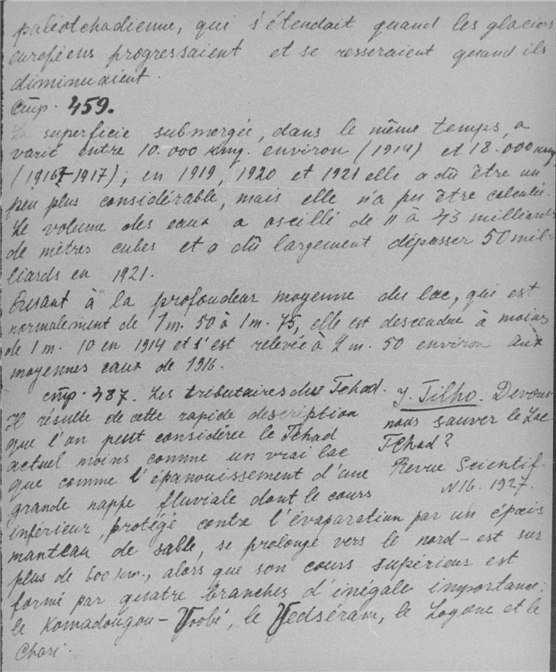 paléotchadienne, qui s'étendait quand les glaciers
européens progressaient et se resseraient quand ils
diminuaient.
стр. 459.
La superficie submergée, dans le même temps, a
varié entre 10.000 kmq. environ (1914) et 18.000 kmq
(1916-1917); en 1919, 1920 et 1921 elle a dû être un
peu plus considérable, mais elle n'a pu être calculée.
Le volume des eaux a oscillé de 11 à 43 milliards
de mètres cubes et a dû largement dépasser 50 mil-
liards en 1921.
Quant à la profondeur moyenne du lac, qui est
normalement de 1 m. 50 à 1 m. 75, elle est descendue à moins
de 1 m. 10 en 1914 et s'est relevée à 2 m. 50 environ aux
moyennes eaux de 1916.
стр. 387. Les tributaires du Tchad.
Il résulte de cette rapide description
que l'on peut considérer le Tchad
actuel moins comme un vrai lac
que comme l'épanouissement d'une
grande nappe fluviale dont le cours
J. Tilho. Devons
nous sauver le Lac
Tchad?
Revue Scientif.
N 16. 1927.
inférieur, protégé contre l'évaporation par un épais
manteau de sable, se prolonge vers le nord-est sur
plus de 600 km., alors que son cours supérieur est
formé par quatre branches d'inégale importance:
le Komadougou-Yoobé, le Yedséram, le Logone et le
Chari.